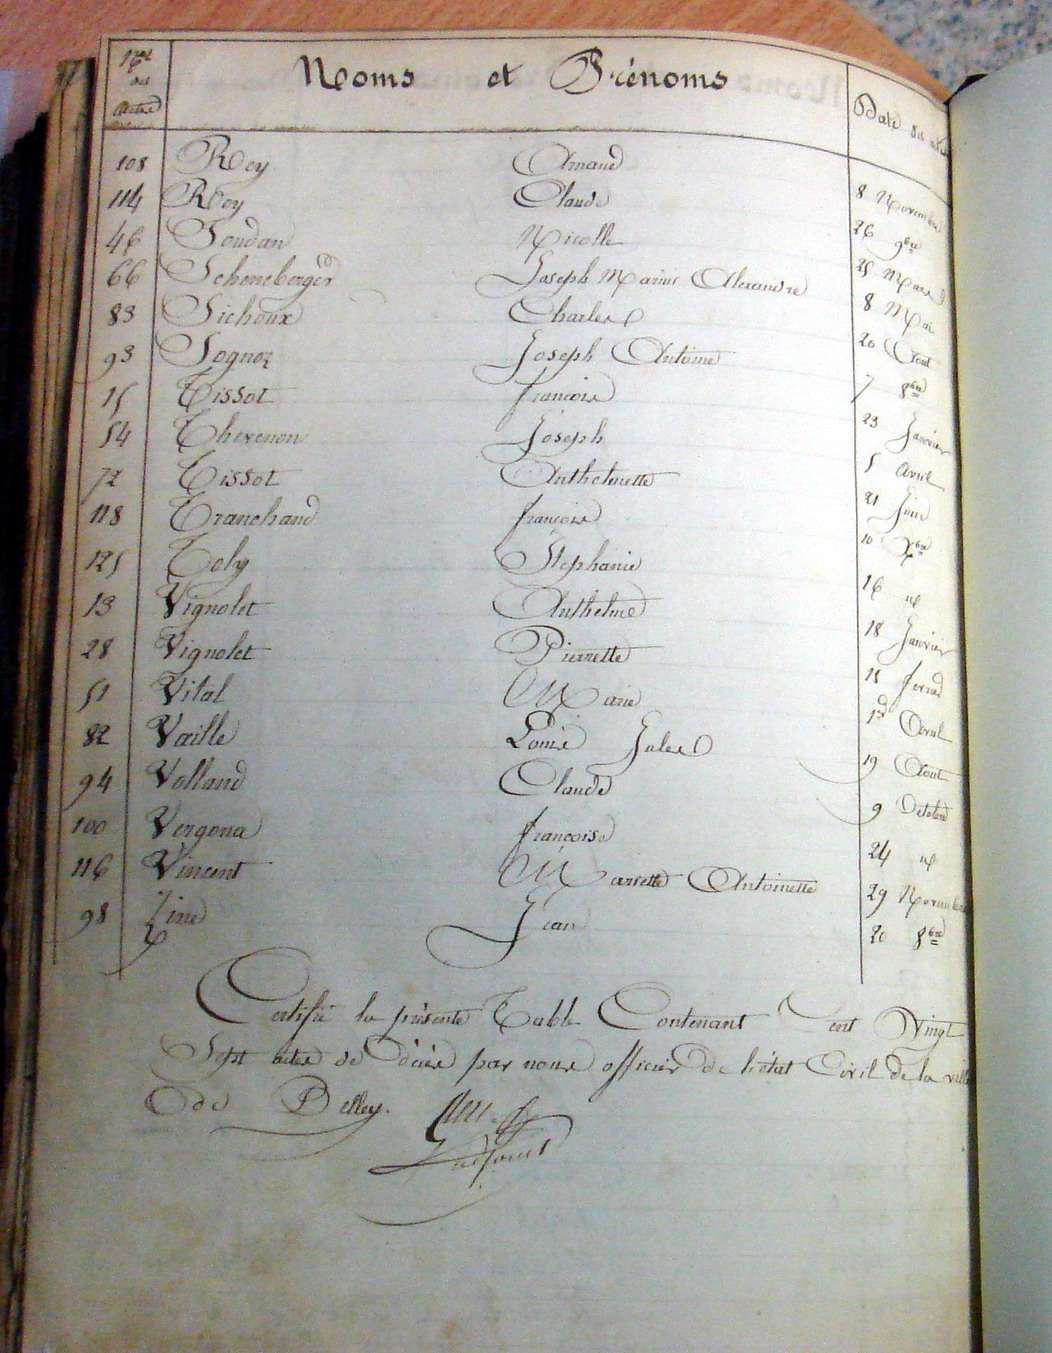 Nos des actes Noms et Prénoms Date des
108 Roy Arnaud 8 Novembre
114 Roy Claude 26 9bre
46 Soudan Nicolle 25 Mars
66 Scheneberger Joseph Marius Alexandre 8 Mai
83 Sichoux Charles 20 Aout
93 Sognoz Joseph Antoine 7 8bre
15 Tissot françois 23 Janvier
54 Thevenon Joseph 5 Avril
72 Tissot Anthelmette 21 Juin
118 Tranchand françois 10 Xbre
125 Toly Stephanie 16 id
13 Vignolet Anthelme 18 Janvier
28 Vignolet Pierrette 15
51 Vital Marie 1er Avril
82 Vaille Louis Jules 19 Aout
94 Volland Claude 9 Octobre
100 Vergona françoise 24 id
116 Vincent Mariette Antoinette 29 Novembre
98 Zine Jean 20 8bre
Certifié la présente Table Contenant Cent Vingt
Sept actes de décès par nous officier de l'état Civil de la ville
de Belley.